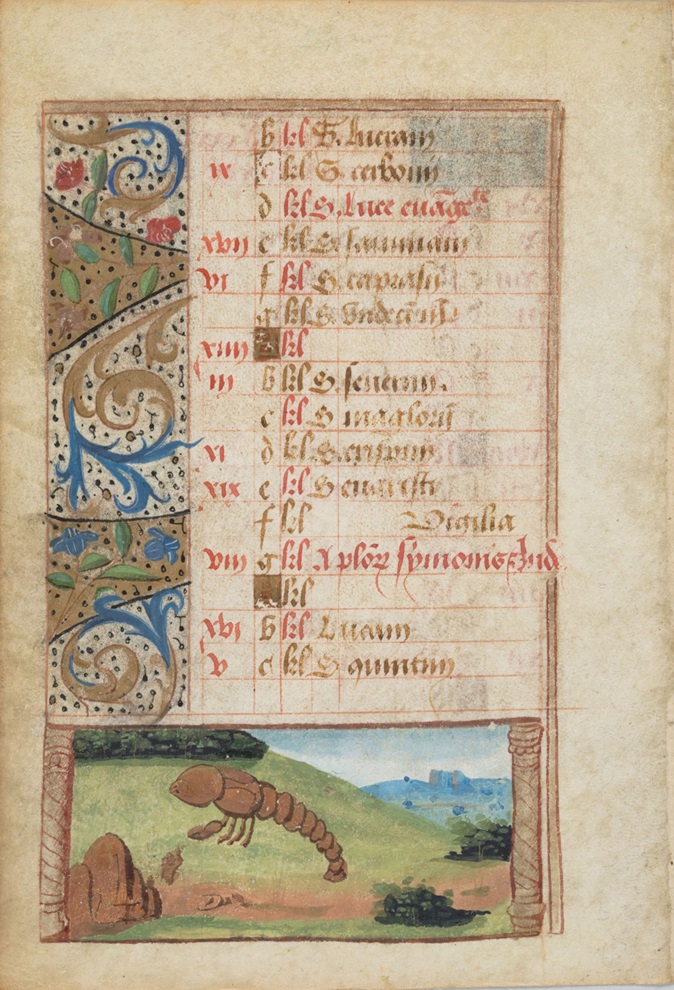 b kl S. luciani
ix c kl S. cerbonii
d kl S. luce euāge
xvii e kl S. sauiniani
vi f kl S. caprasii
g kl S. vndecī
xiiii A kl
iii b kl S. seuerini.
c kl S. maglorii
xi d kl S. crispini
xix e kl S. euaristi
f kl Vigilia
viii g kl Aplōꝝ symonis ⁊ Iud
kl
xvi b kl Lucani
v c kl S. quintini